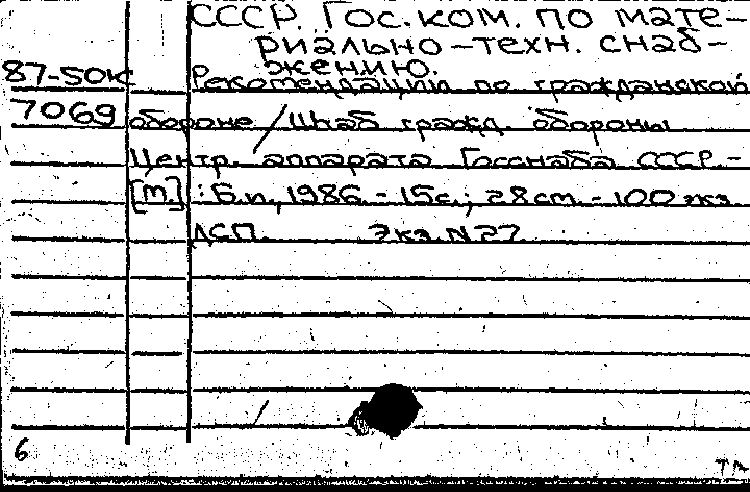 СССР. Гос. ком. по мате-
риально-техн. снаб-
жению.
87-50к Рекомендации по гражданской
7069 обороне / Штаб гражд. обороны
Центр. аппарата Госснаба СССР. -
[М.] : Б.и., 1986. - 15с.; 28см. - 100 экз
ДСП. Экз. N 27
6